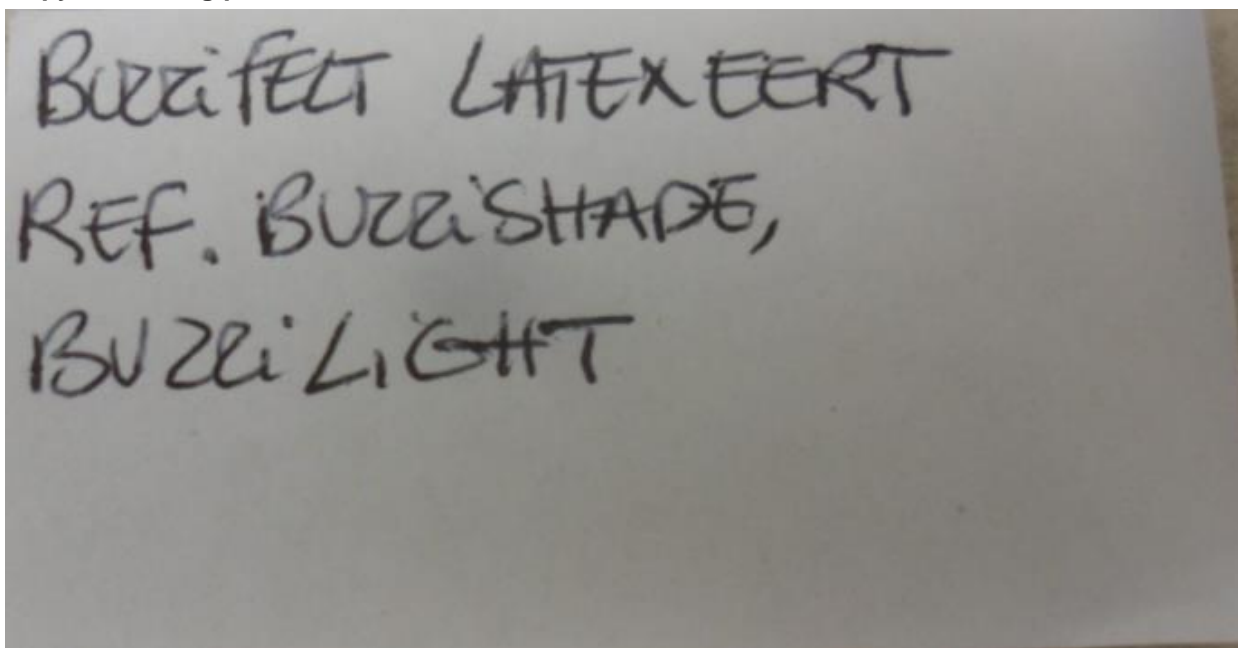 BuzziFELT LATEXEERT
REF. BUZZiSHADE,
BUZZiLiGHT